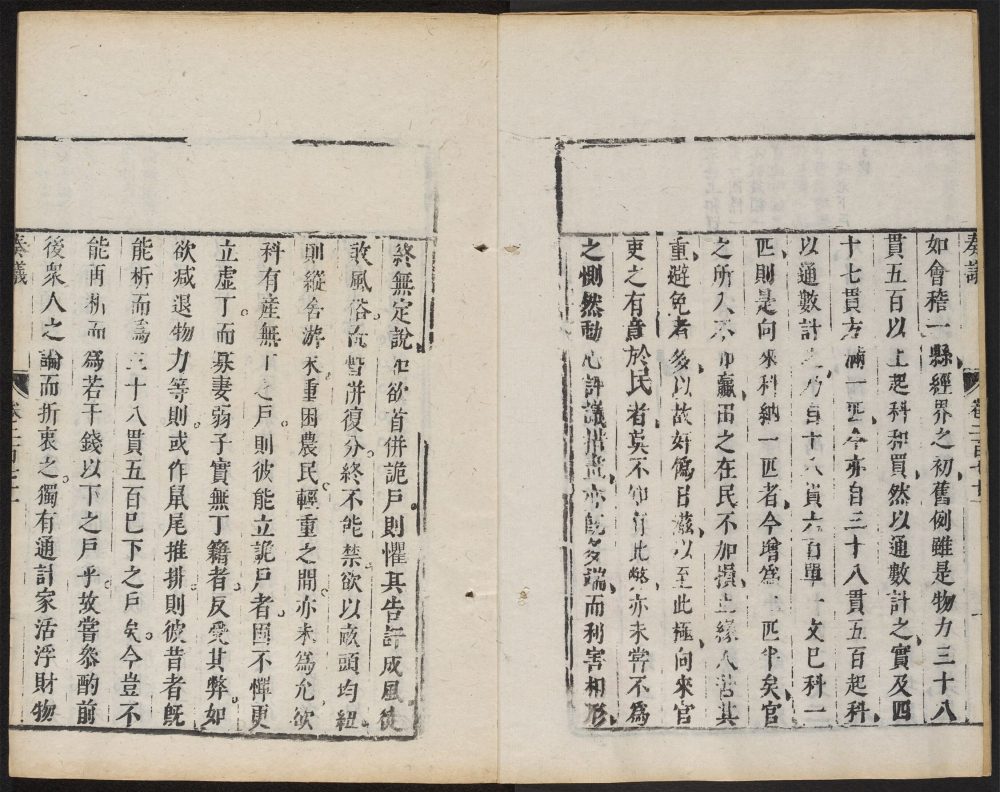 奏議
卷二百七十
如會稽一縣經界之初舊例雖是物力三十八
貫五百以上起科和買然以通數計之實及四
十七貫方滿一匹今亦自三十八貫五百起科
以通數計之乃自十八貫六百單一文已科一
匹則是向來科納一匹者今增為二匹半矣官
之所入不加贏田之在民不加損止緣人苦其
重避免者多以故奸偽日滋以至此極向來官
吏之有意於民者莫不仰首此弊亦未嘗不為
之惻然動心計議措畫亦旣多端而利害相形
終無定說如欲首併詭戶則懼其告訐成風徒
敗風俗而暫併復分終不能禁欲以畝頭均紐
則縱舍游末重困農民輕重之間亦未為允欲
科有產無丁之戶則彼能立詭戶者固不憚更
立虛丁而寡妻弱子實無丁籍者反受其弊如
欲減退物力等則或作鼠尾推排則彼昔者旣
能析而為三十八貫五百已下之戶矣今豈不
能再析而為若干錢以下之戶乎故嘗叅酌前
後衆人之論而折衷之獨有通計家活浮財物
奏議